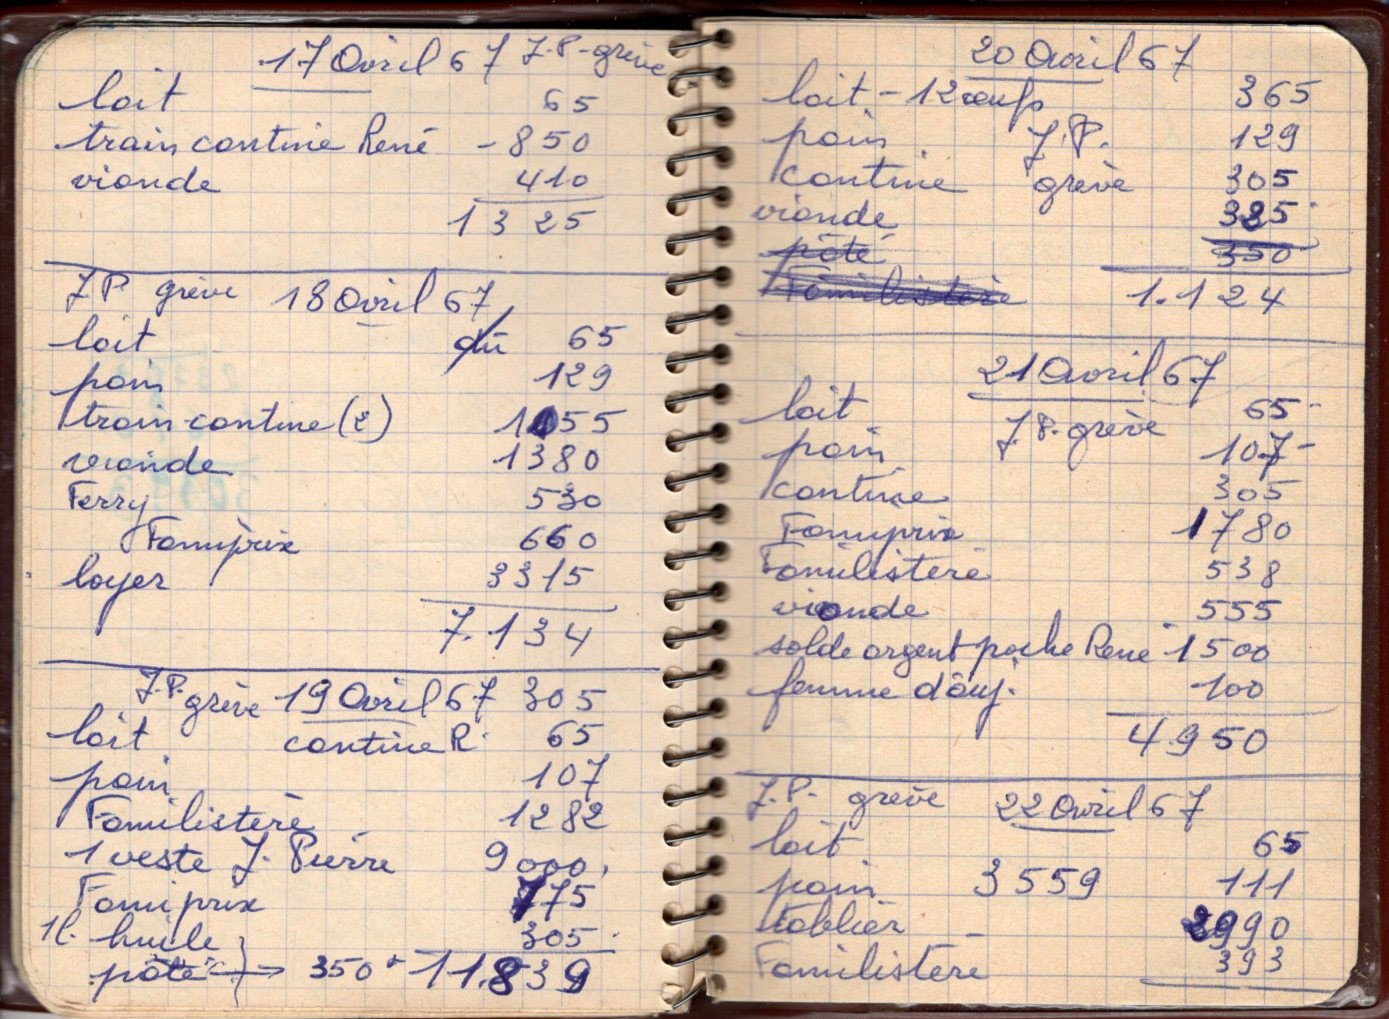 17 Avril 67 J.P-grève
lait 65
train cantine René - 850
viande 410
1325
J.P grève 18 Avril 67
lait dû 65
pain 129
train-cantine (2) 1055
viande 1380
Ferry 530
Famiprix 660
loyer 3315
7.134
J.P. grève 19 Avril 67 305
lait cantine R. 65
pain 107
Familistère 1282
1 veste J. Pierre 9000
Famiprix 775
1l. huile 305
pâté → 350 + 11.839
20 Avril 67
lait - 12 œufs 365
pain J.P. 129
cantine grève 305
viande 325
pâté 350
Familistère 1.124
21 Avril 67
lait 65 -
pain J.P. grève 107 -
cantine 305
Famiprix 1780
Familistère 538
viande 555
solde argent poche René 1500
femme d'ouj. 100
4950
J.P. grève 22 Avril 67
lait 65
pain 3559 111
tablier 2990
Familistère 393